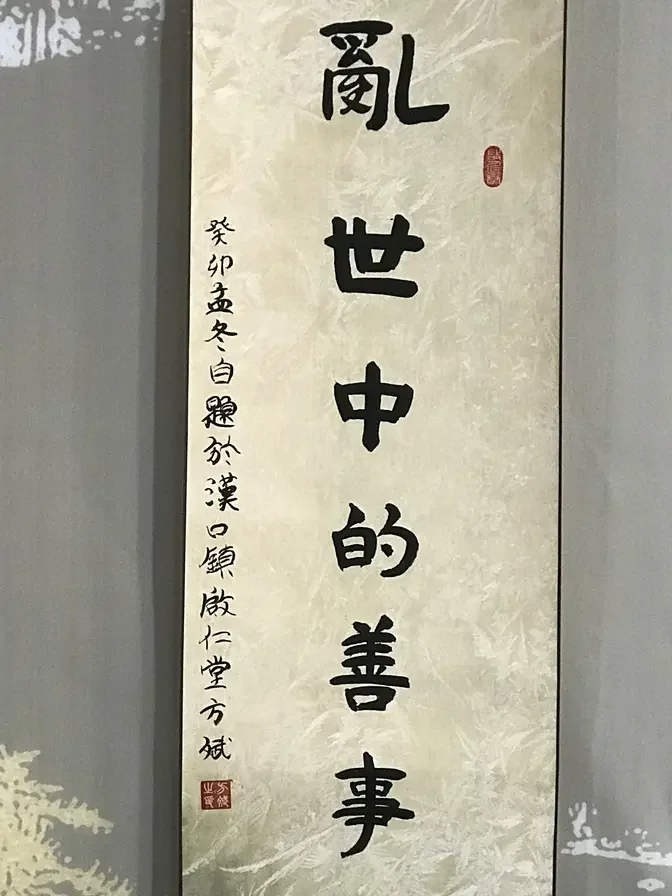 亂世中的善事
癸卯孟冬自題於漢口鎮啟仁堂方斌